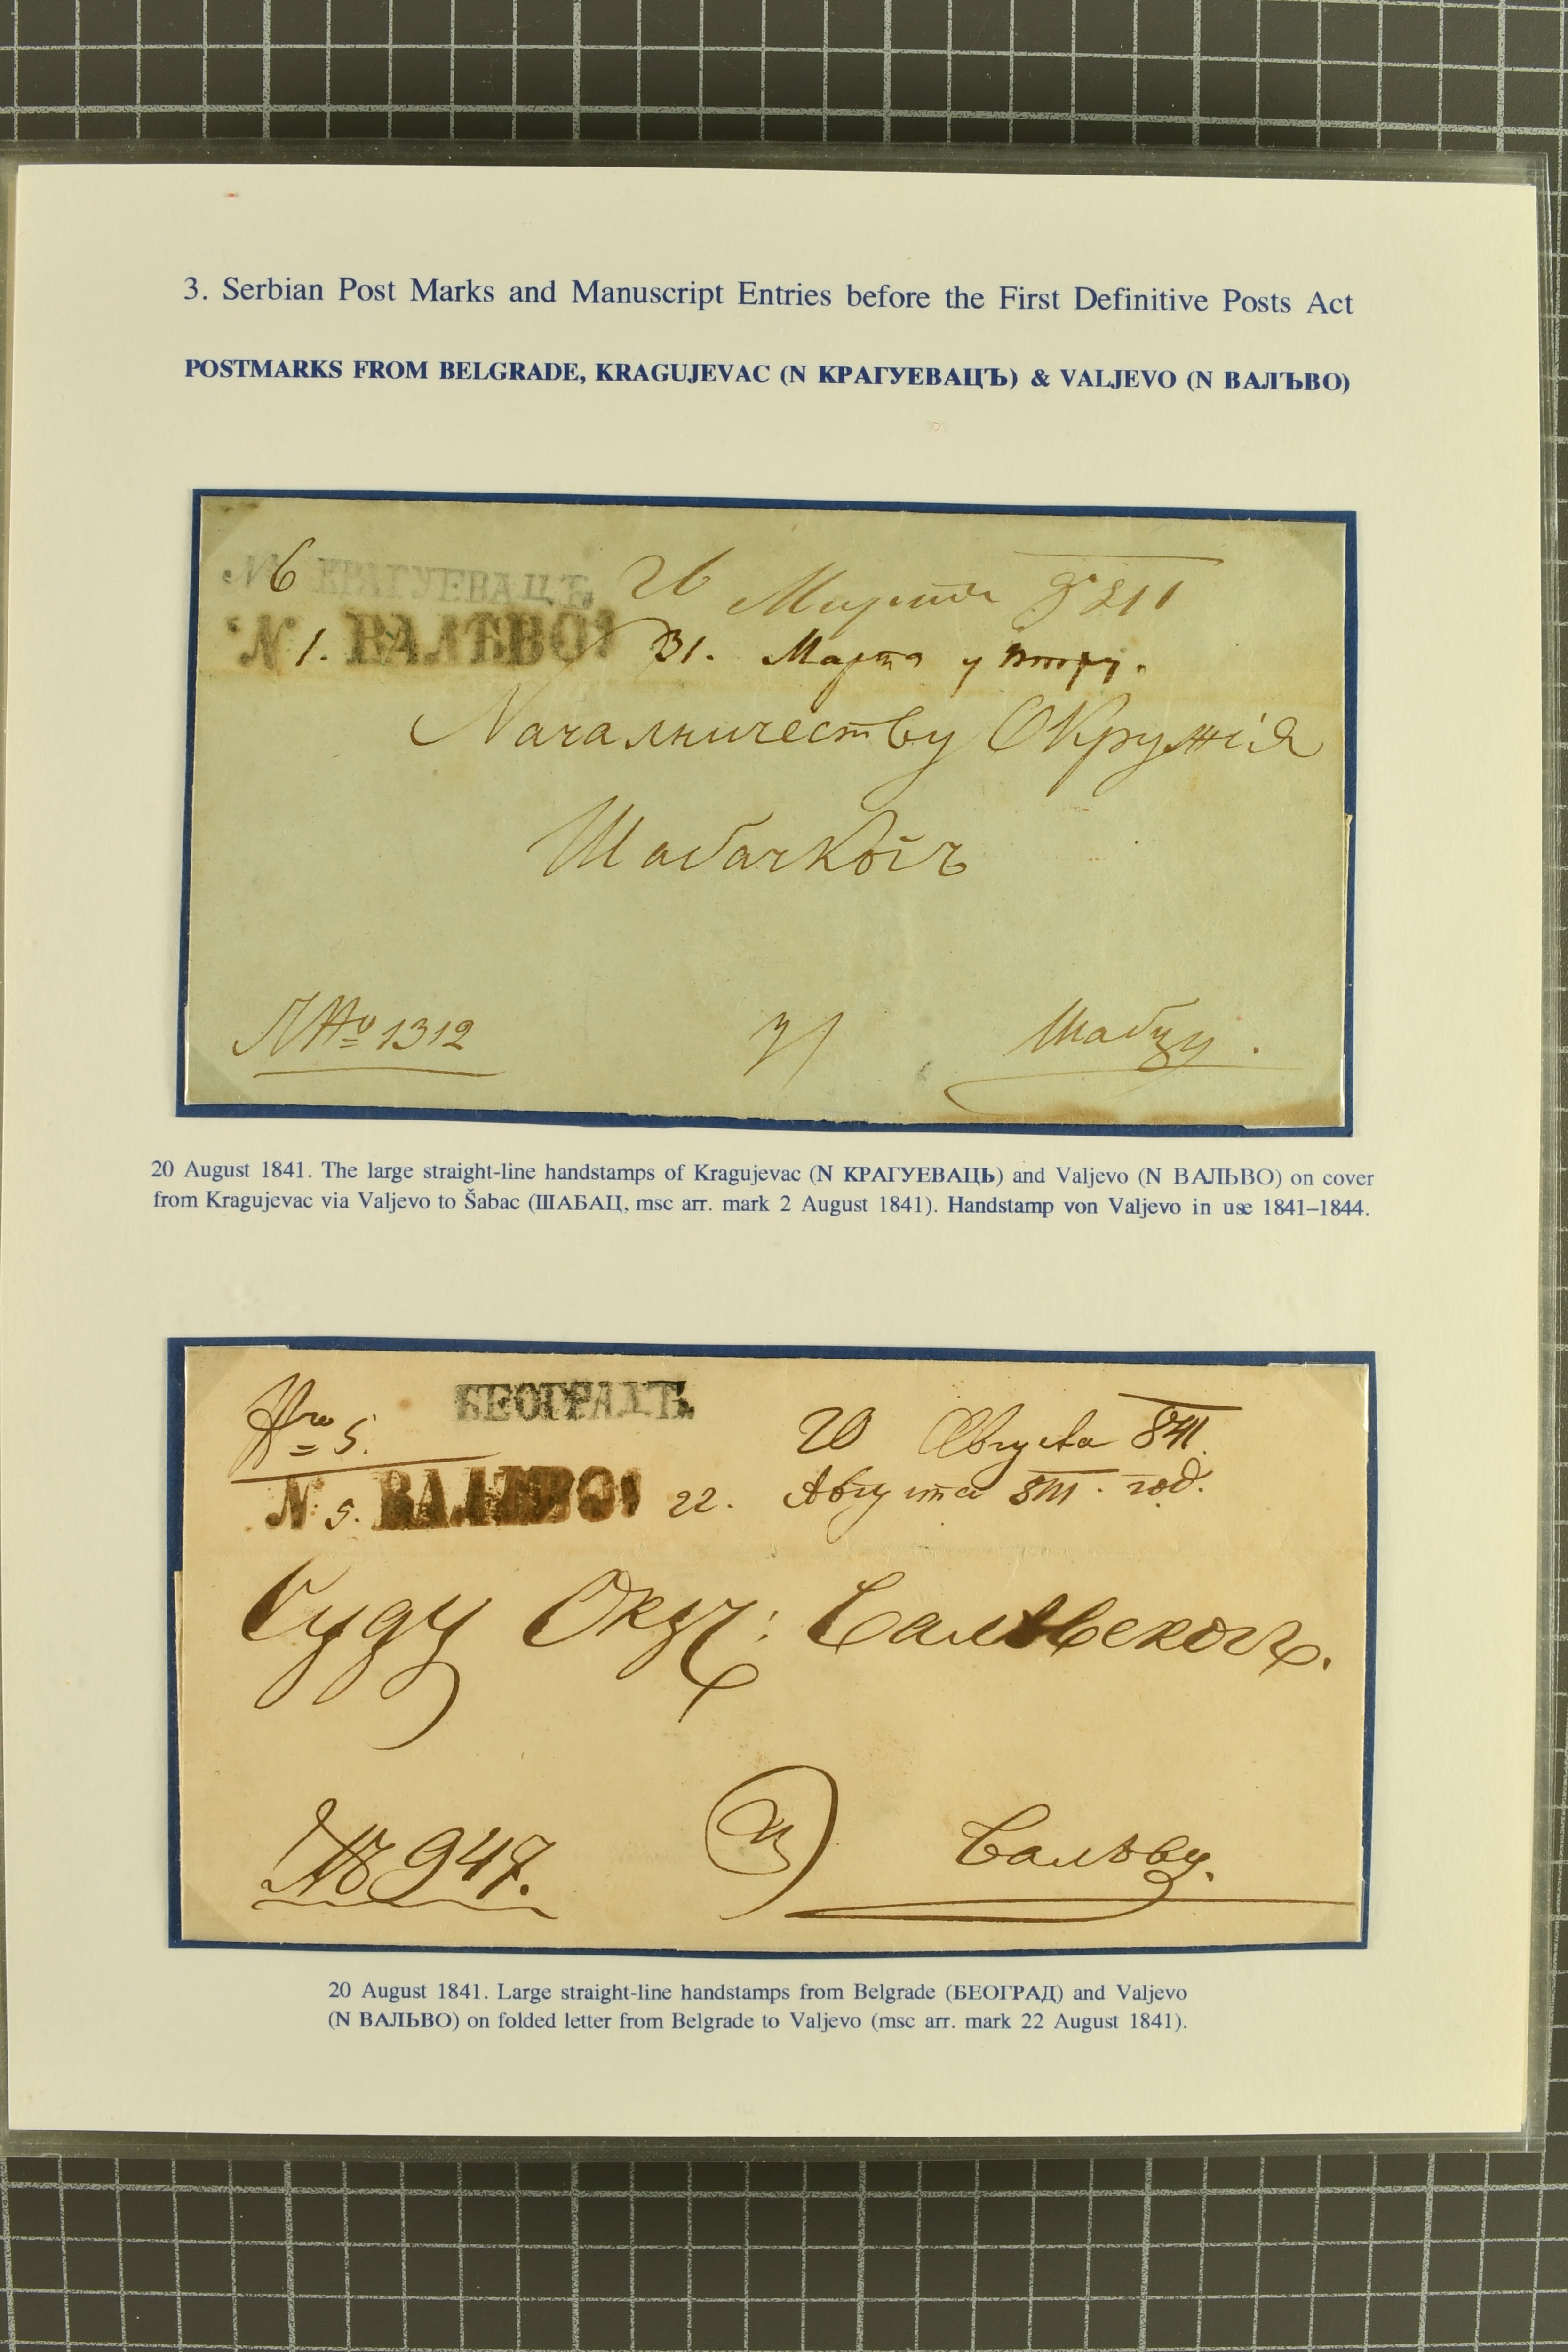 3. Serbian Post Marks and Manuscript Entries before the First Definitive Posts Act
POSTMARKS FROM BELGRADE, KRAGUJEVAC (N КРАГУЕВАЦЪ) & VALJEVO (N ВАЛЪВО)
N 6 КРАГУЕВАЦЪ. 26 Марта
N 1. ВАЛѢВО 31. Марта у
Началничеству Окружія
Шабачкогъ
1312 у Шабцу.
20 August 1841. The large straight-line handstamps of Kragujevac (N КРАГУЕВАЦЬ) and Valjevo (N ВАЛЬВО) on cover
from Kragujevac via Valjevo to Šabac (ШАБАЦ, msc arr. mark 2 August 1841). Handstamp von Valjevo in use 1841–1844.
Nro 5. БЕОГРАДЪ. 20 Августа 841.
N 5. ВАЛѢВО 22. Августа 841. год.
Суду Окр: Валѣвскогъ.
№ 947. у Валѣву.
20 August 1841. Large straight-line handstamps from Belgrade (БЕОГРАД) and Valjevo
(N ВАЛЬВО) on folded letter from Belgrade to Valjevo (msc arr. mark 22 August 1841).